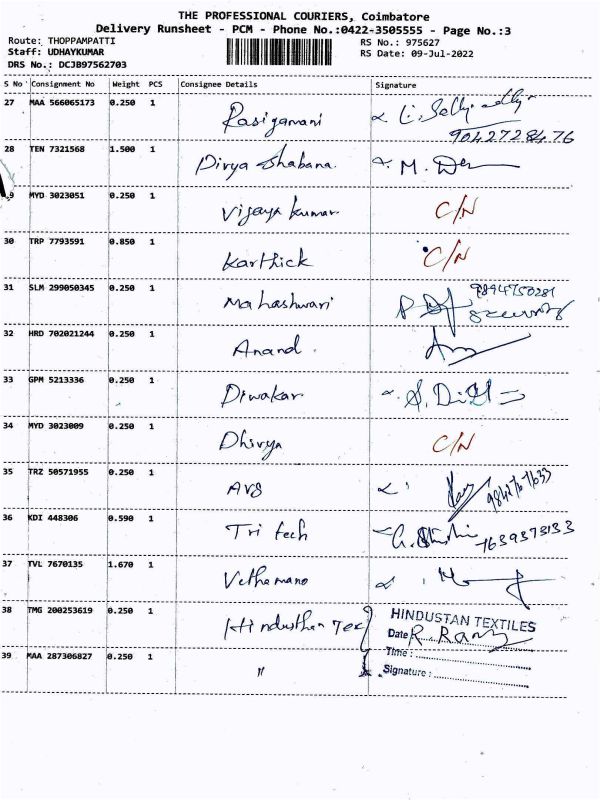 THE PROFESSIONAL COURIERS, Coimbatore
Delivery Runsheet - PCM - Phone No.:0422-3505555 - Page No.:3
Route: THOPPAMPATTI RS No.: 975627
Staff: UDHAYKUMAR RS Date: 09-Jul-2022
DRS No.: DCJB97562703
S No Consignment No Weight PCS Consignee Details Signature
27 MAA 566065173 0.250 1 Rasigamani
9042728476
28 TEN 7321568 1.500 1 Divya Shabana. M.
MYD 3023051 0.250 1 Vijaya kumar. C/N
30 TRP 7793591 0.850 1 Karthick C/N
31 SLM 299050345 0.250 1 Mahashwari 9894750281
32 HRD 702021244 0.250 1 Anand.
33 GPM 5213336 0.250 1 Diwakar
34 MYD 3023009 0.250 1 Dhivya C/N
35 TRZ 50571955 0.250 1 AVS
36 KDI 448306 0.590 1 Tri tech 7639373133
37 TVL 7670135 1.670 1 Vethamano
38 TMG 200253619 0.250 1 Hindusthan Tex HINDUSTAN TEXTILES
Date
Time :
39 MAA 287306827 0.250 1 " Signature :